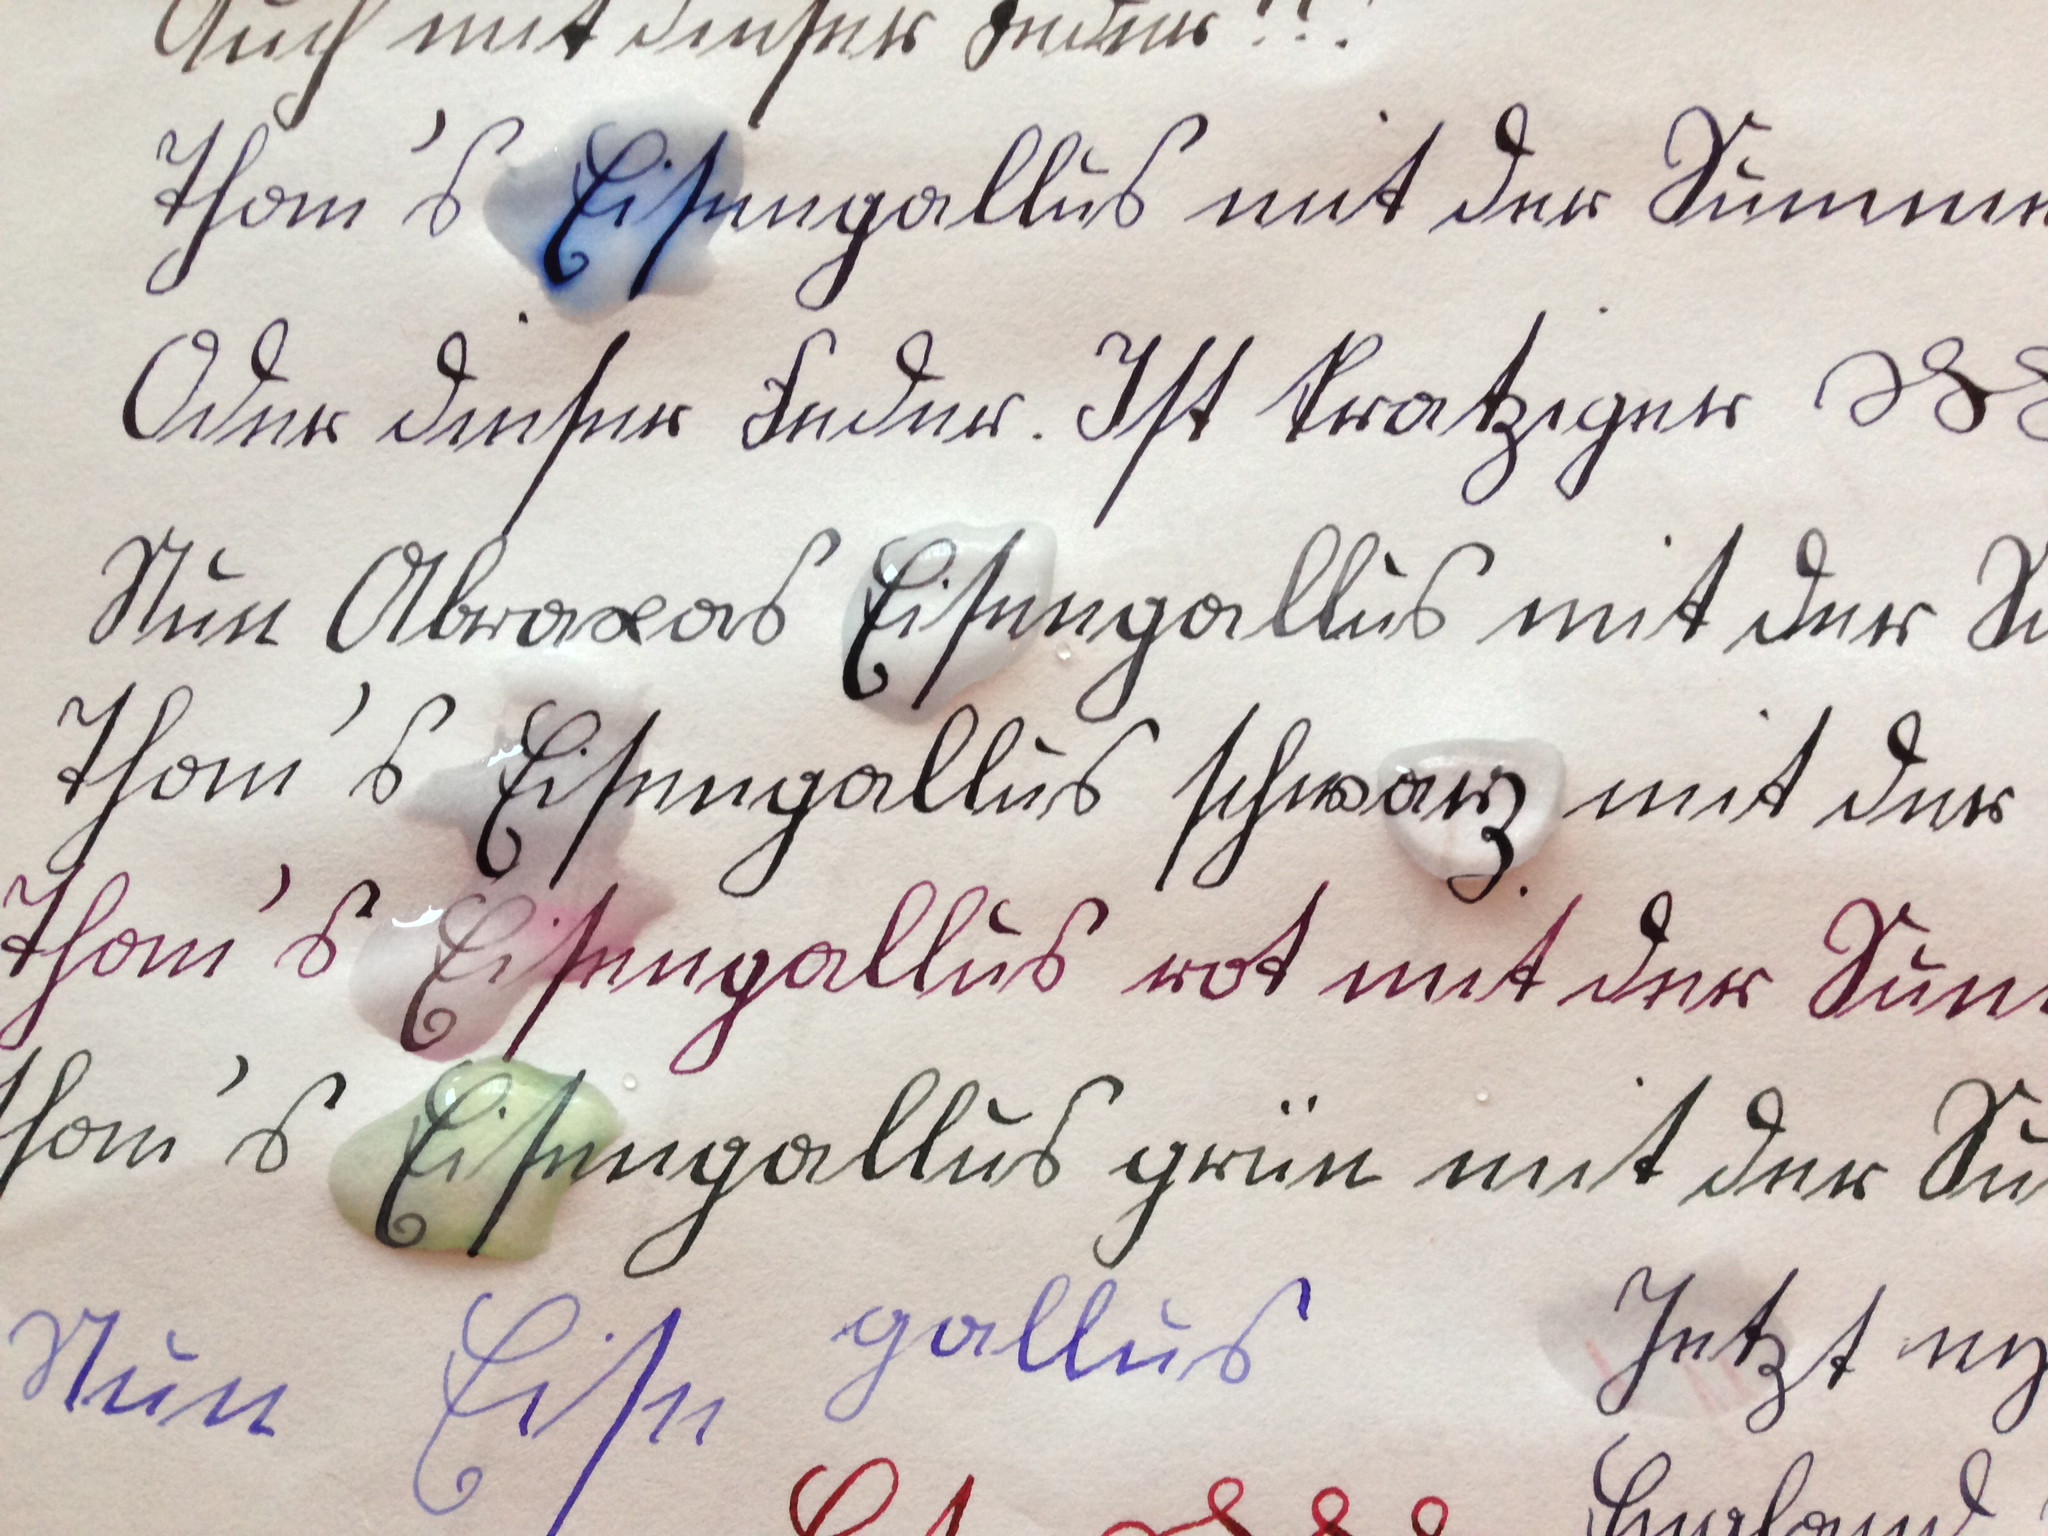 Auch mit dieser Feder!!!
Thom's Eisengallus mit der
Oder dieser Feder. Ist kratziger
Nun Abraxas Eisengallus mit der
Thom's Eisengallus schwarz mit der
Thom's Eisengallus rot mit der
Thom's Eisengallus grün mit der
Nun gallus Jetzt
England